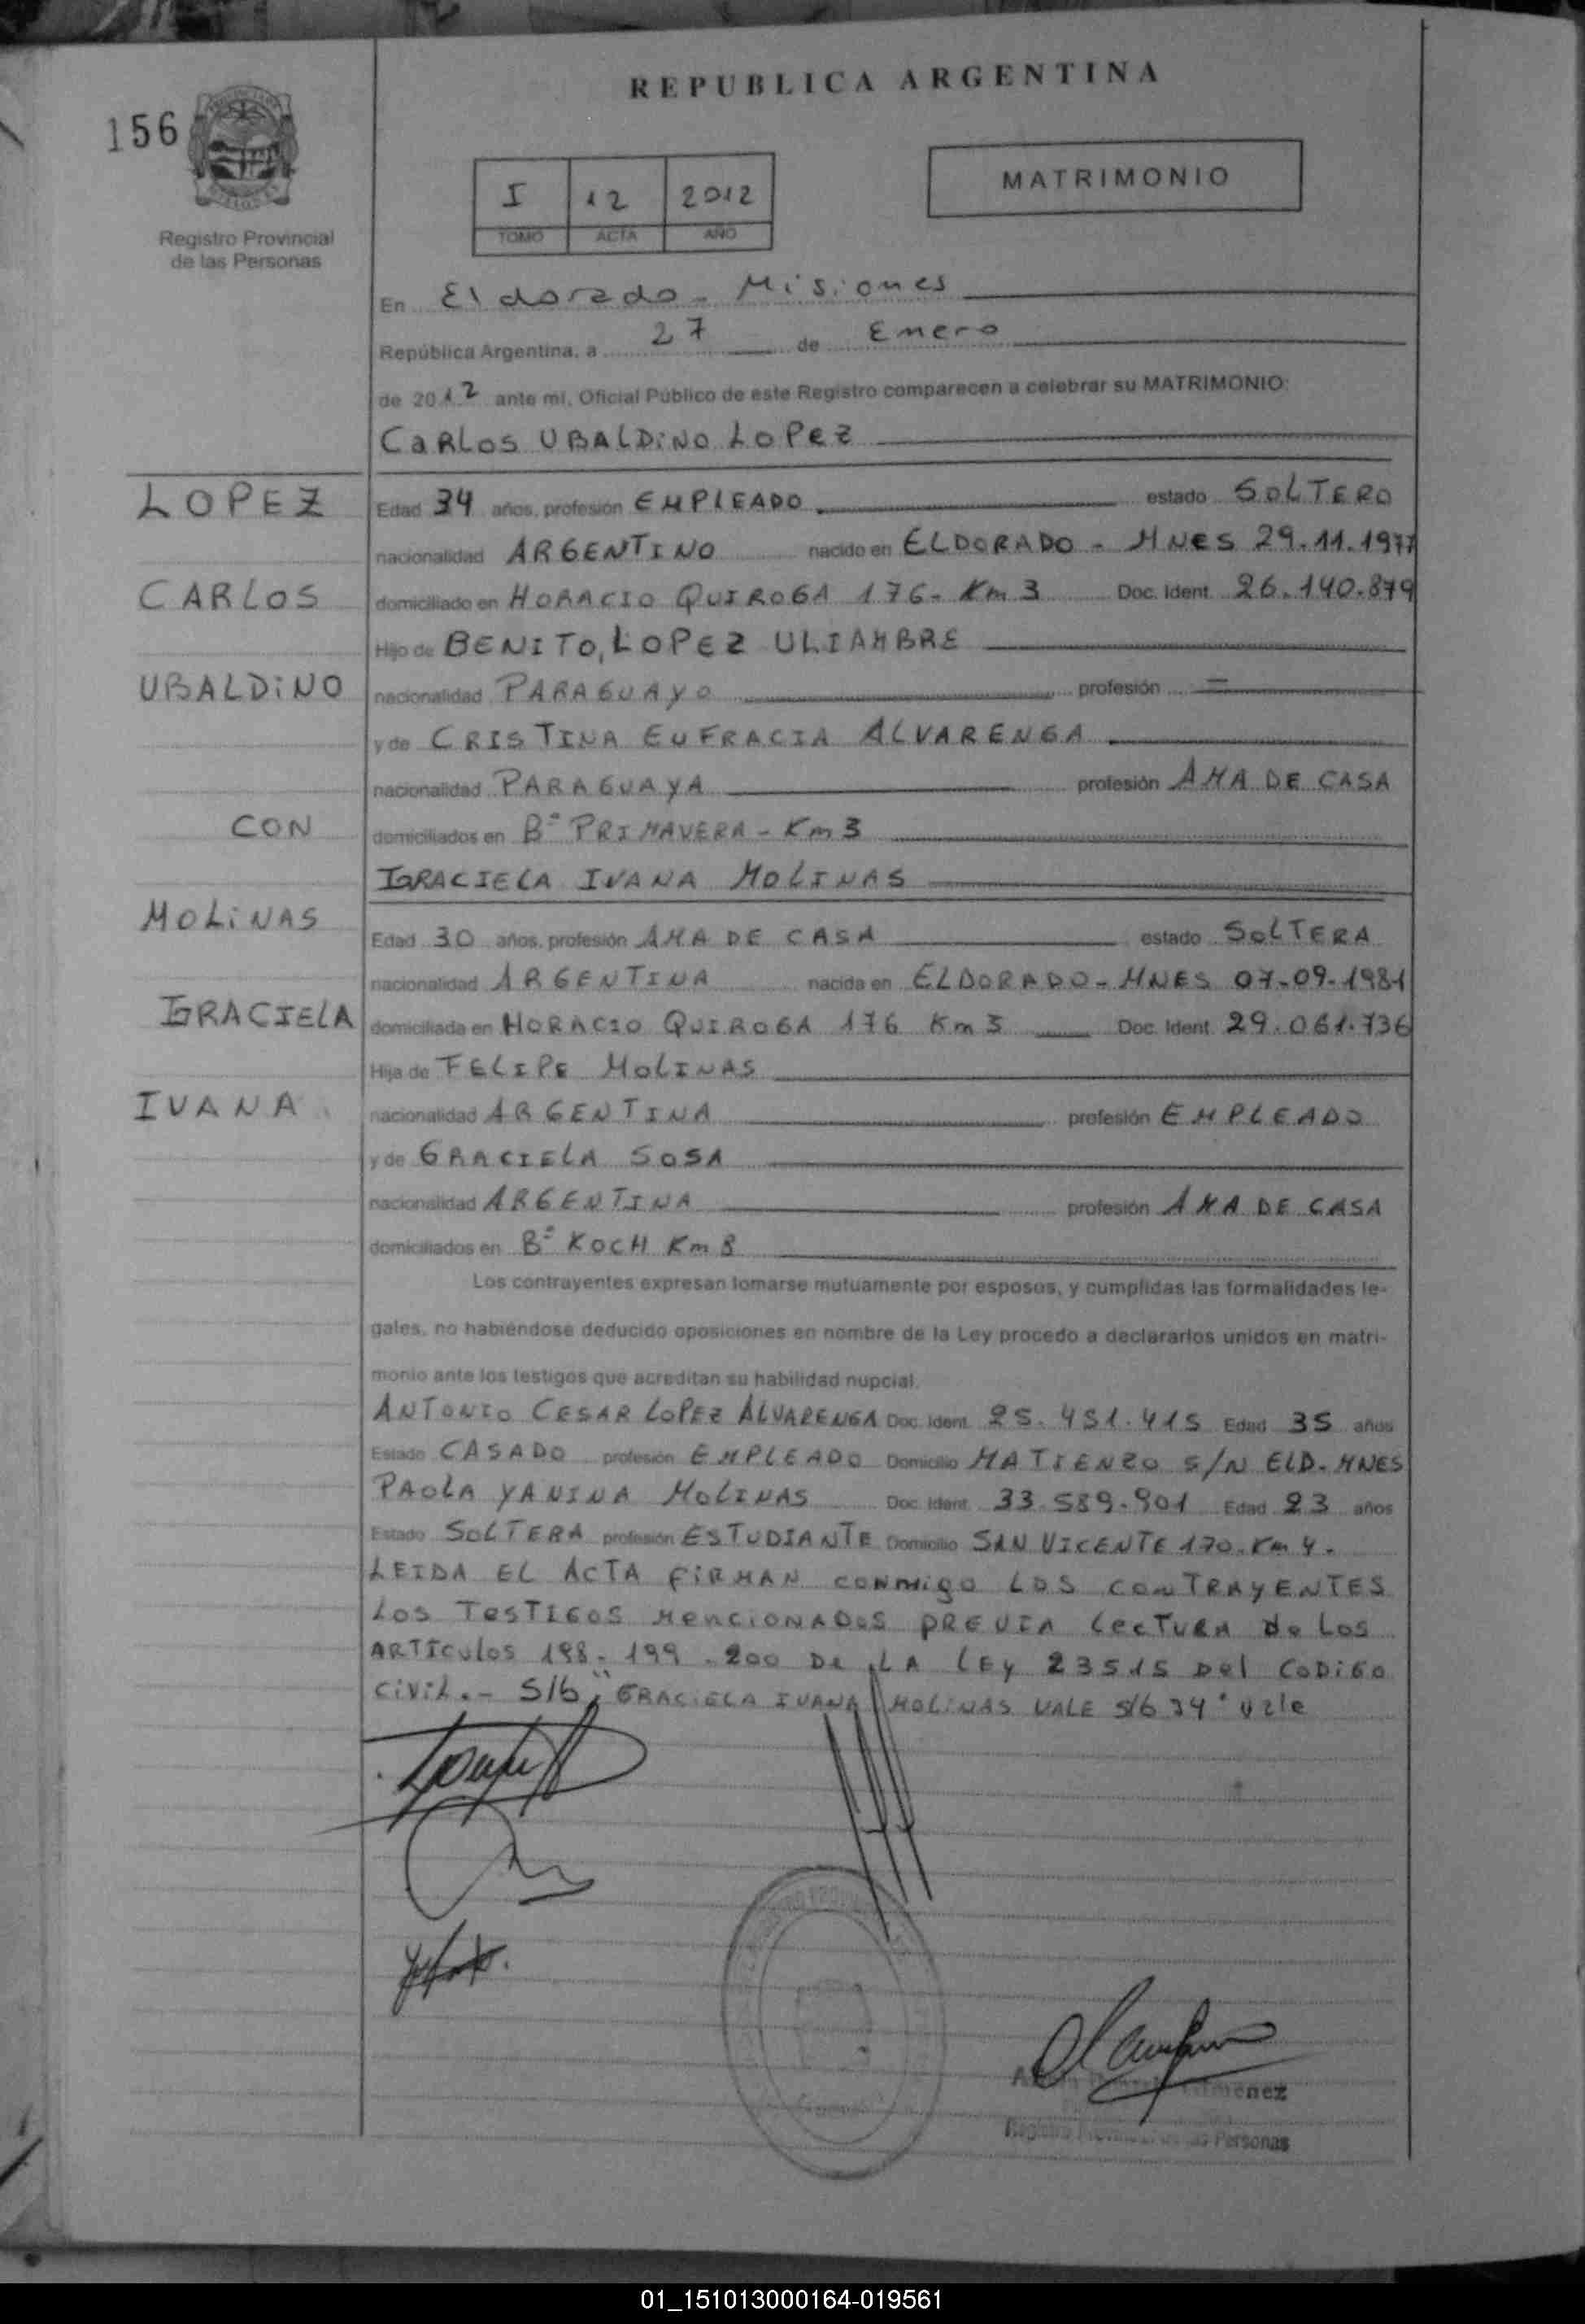 REPUBLICA ARGENTINA
156
MATRIMONIO
I 12 2012
TOMO ACTA AÑO
Registro Provincial
de las Personas
En Eldorado - Misiones
República Argentina, a 27 de Enero
de 2012 ante mi, Oficial Público de este Registro comparecen a celebrar su MATRIMONIO:
CARLOS UBALDINO LOPEZ
LOPEZ
Edad 34 años, profesión EMPLEADO estado SOLTERO
nacionalidad ARGENTINO nacido en ELDORADO - MNES 29.11.1977
CARLOS
domiciliado en HORACIO QUIROGA 176 - Km 3 Doc. Ident. 26.140.879
Hijo de BENITO, LOPEZ ULIAMBRE
UBALDINO
nacionalidad PARAGUAYO profesión =
y de CRISTINA EUFRACIA ALVARENGA
nacionalidad PARAGUAYA profesión AMA DE CASA
CON
domiciliados en Bº PRIMAVERA - Km 3
GRACIELA IVANA MOLINAS
MOLINAS
Edad 30 años, profesión AMA DE CASA estado SOLTERA
nacionalidad ARGENTINA nacida en ELDORADO - MNES 07-09-1981
GRACIELA
domiciliada en HORACIO QUIROGA 176 Km 3 Doc. Ident. 29.061.736
Hija de FELIPE MOLINAS
IVANA
nacionalidad ARGENTINA profesión EMPLEADO
y de GRACIELA SOSA
nacionalidad ARGENTINA profesión AMA DE CASA
domiciliados en Bº KOCH Km 8
Los contrayentes expresan tomarse mutuamente por esposos, y cumplidas las formalidades le-
gales, no habiéndose deducido oposiciones en nombre de la Ley procedo a declararlos unidos en matri-
monio ante los testigos que acreditan su habilidad nupcial.
ANTONIO CESAR LOPEZ ALVARENGA Doc. Ident. 25.451.415 Edad 35 años
Estado CASADO profesión EMPLEADO Domicilio MATIENZO S/N ELD. MNES
PAOLA YANINA MOLINAS Doc. Ident. 33.589.901 Edad 23 años
Estado SOLTERA profesión ESTUDIANTE Domicilio SAN VICENTE 170. Km 4.
LEIDA EL ACTA FIRMAN conmigo LOS CONTRAYENTES
LOS TESTIGOS MENCIONADOS PREVIA LECTURA de Los
ARTICULOS 198 - 199 - 200 DE LA LEY 23515 Del CODIGO
CIVIL.- S/b " GRACIELA IVANA MOLINAS VALE S/b 34" vale
menez
Registro Personas
01_151013000164-019561